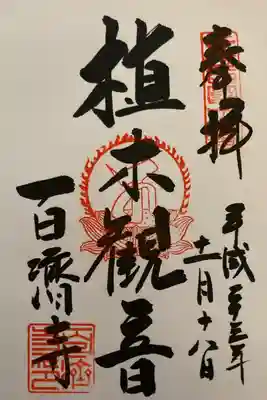 奉拝
平成二十三年
十一月十八日
植木観音
百濟寺